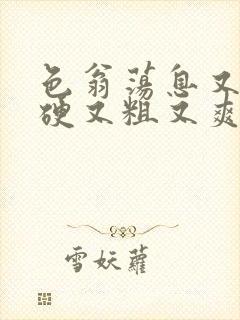 色翁荡息又
硬又粗又爽
雪妖蘿